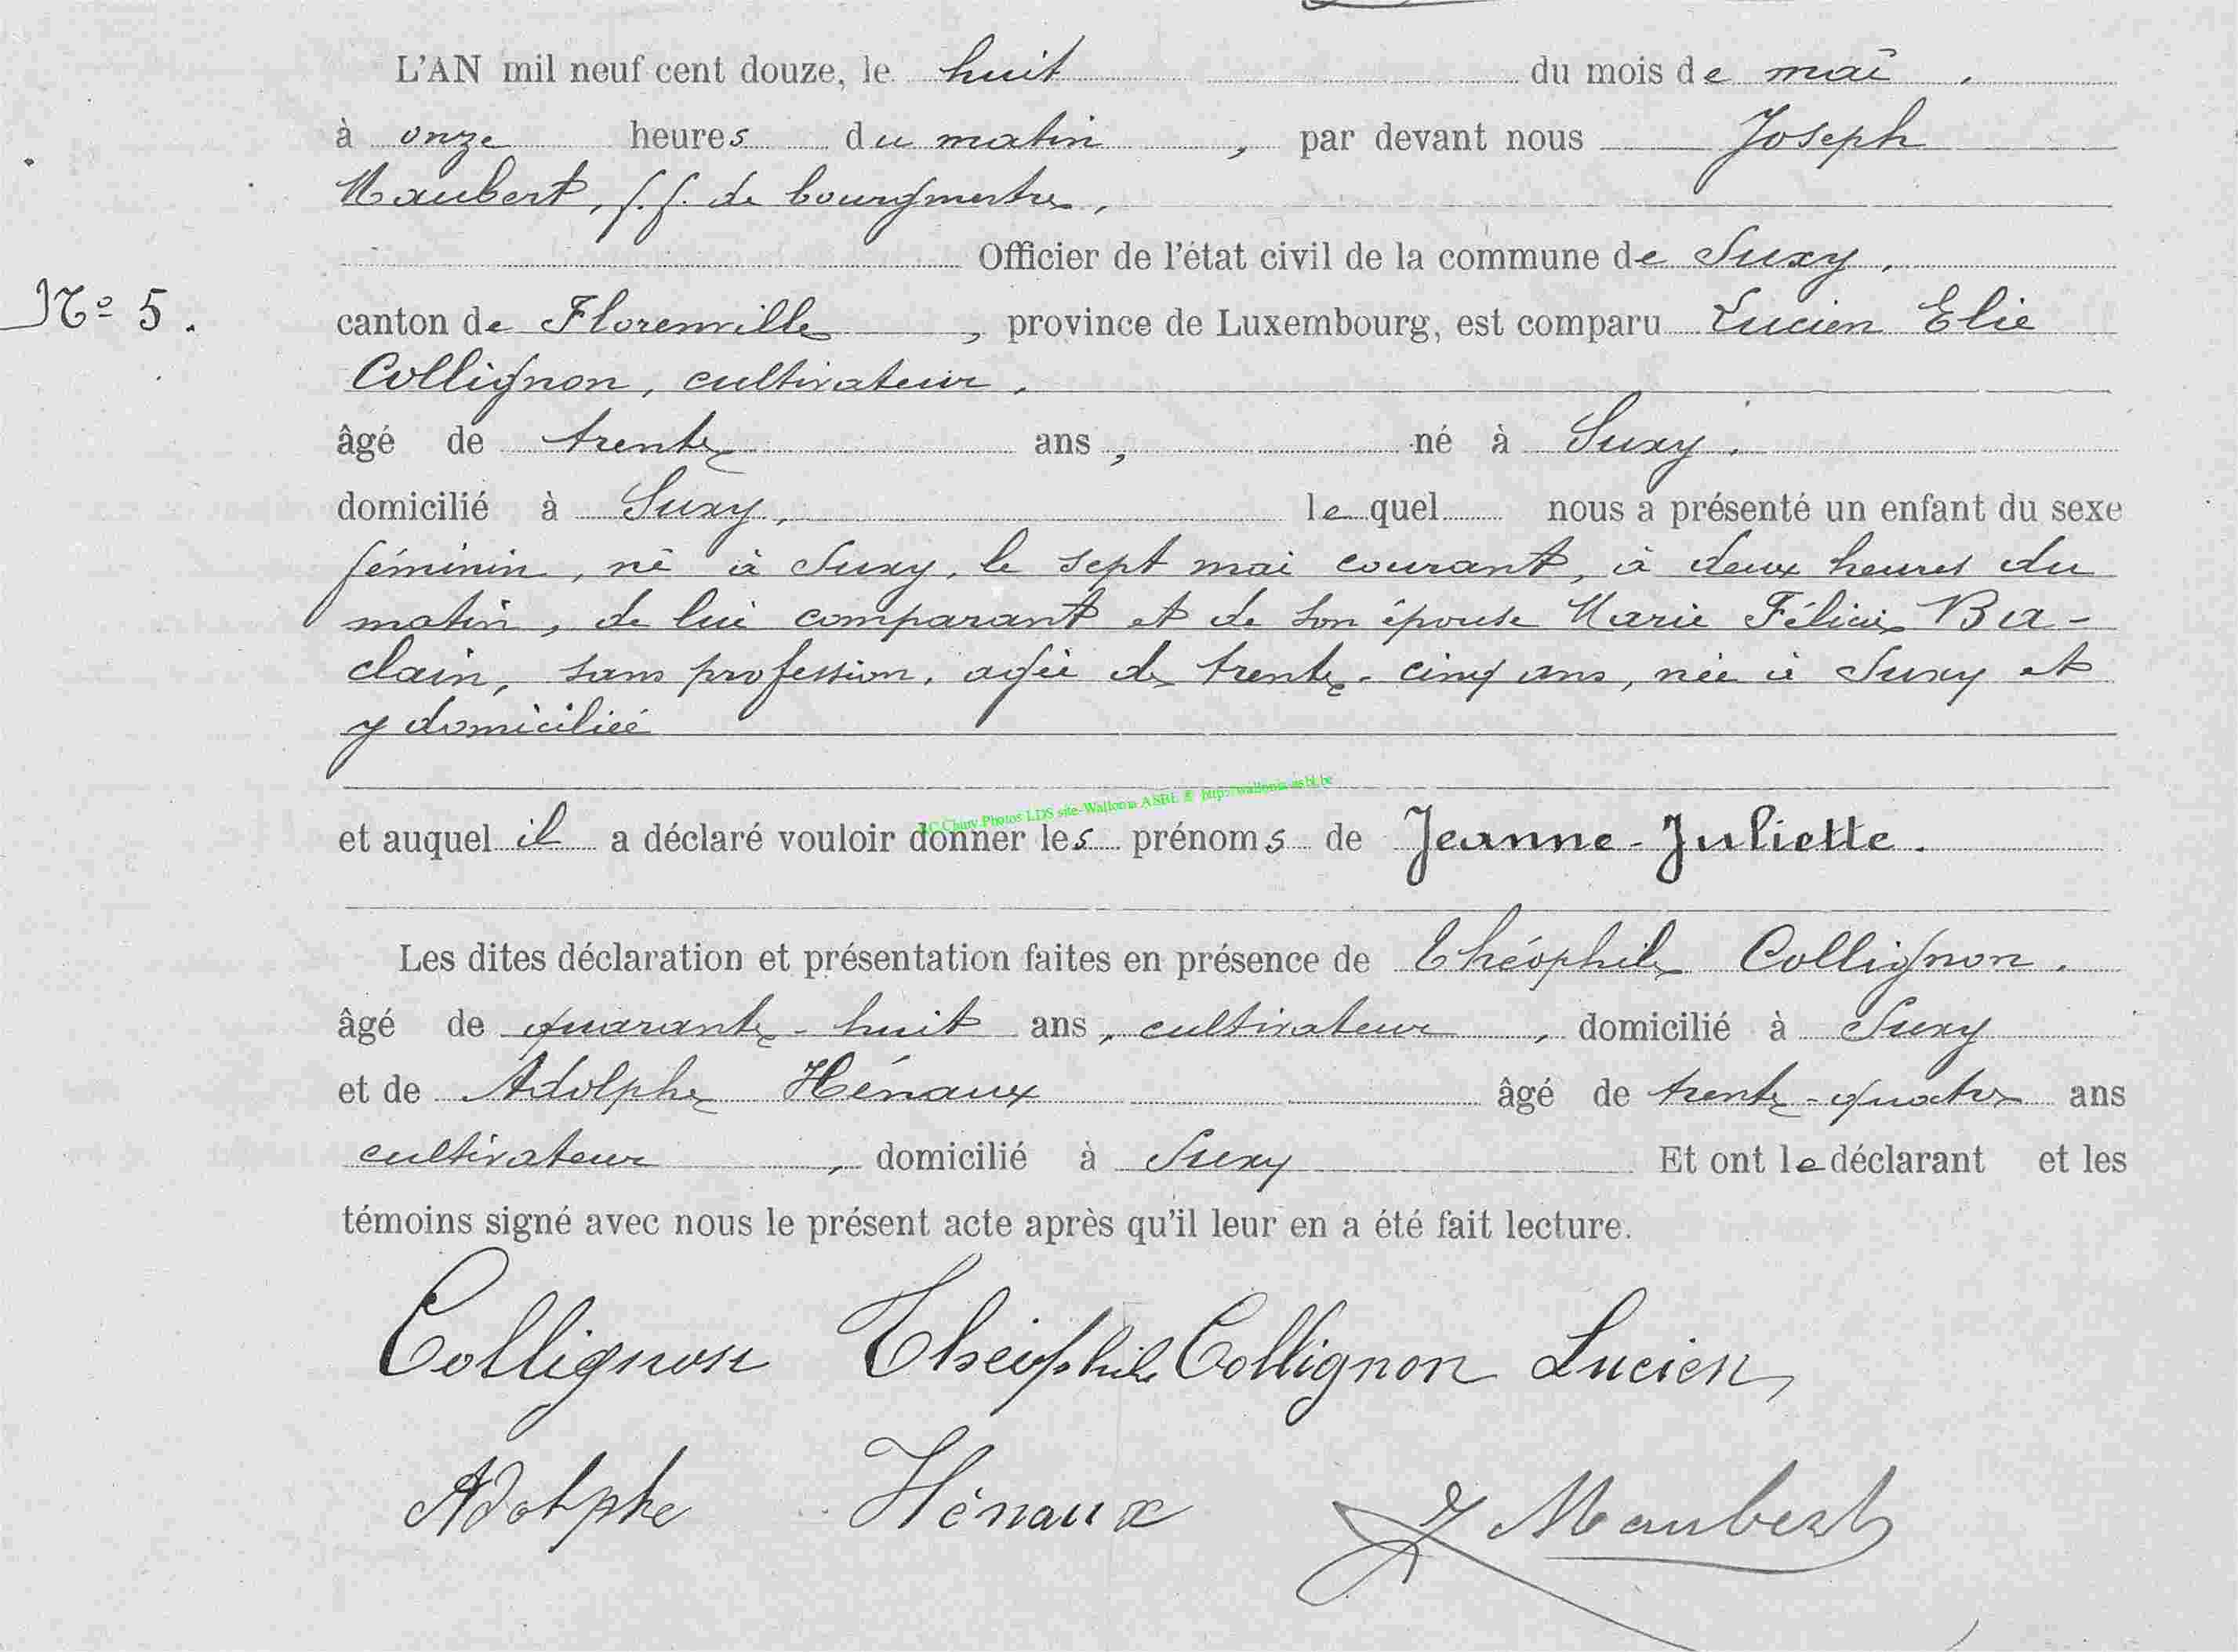 L'AN mil neuf cent douze, le huit du mois de mai,
à onze heures du matin, par devant nous Joseph
Maubert, f.f. de bourgmestre,
Officier de l'état civil de la commune de Suxy,
N° 5.
canton de Florenville, province de Luxembourg, est comparu Lucien Elie
Collignon, cultivateur,
âgé de trente ans, né à Suxy,
domicilié à Suxy, lequel nous a présenté un enfant du sexe
féminin, né à Suxy, le sept mai courant, à deux heures du
matin, de lui comparant et de son épouse Marie Félicie Ba-
clain, sans profession, agée de trente-cinq ans, née à Suxy et
y domiciliée
RC Chiny Photos LDS site-Wallonia ASBL © http://wallonia-asbl.be
et auquel il a déclaré vouloir donner les prénoms de Jeanne-Juliette.
Les dites déclaration et présentation faites en présence de Théophile Collignon,
âgé de quarante-huit ans, cultivateur, domicilié à Suxy
et de Adolphe Hénaux âgé de trente-quatre ans
cultivateur, domicilié à Suxy Et ont le déclarant et les
témoins signé avec nous le présent acte après qu'il leur en a été fait lecture.
Collignon Théophile Collignon Lucien
Adolphe Hénaux J Maubert